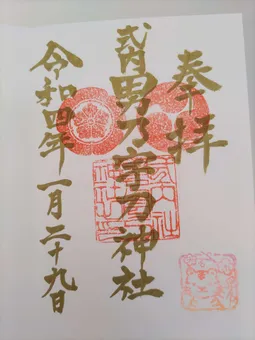 奉拝
式内男乃宇刀神社
令和四年一月二十九日